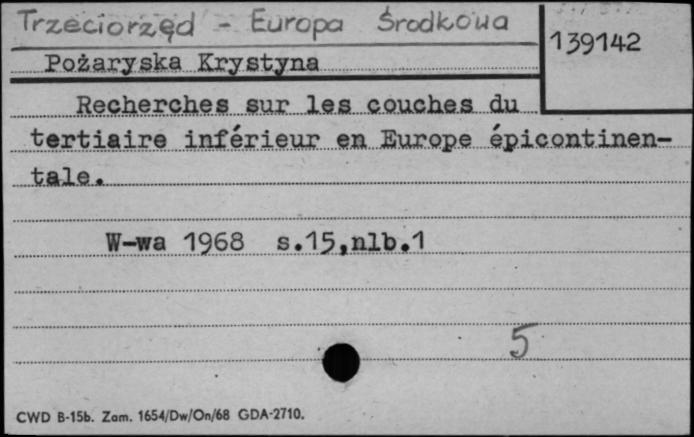 Trzeciorzęd - Europa Środkowa
139142
Pożaryska Krystyna
Recherches sur les couches du
tertiaire inférieur en Europe épicontinen-
tale.
W-wa 1968 s.15,nlb.1
5
CWD B-15b. Zam. 1654/Dw/On/68 GDA-2710.